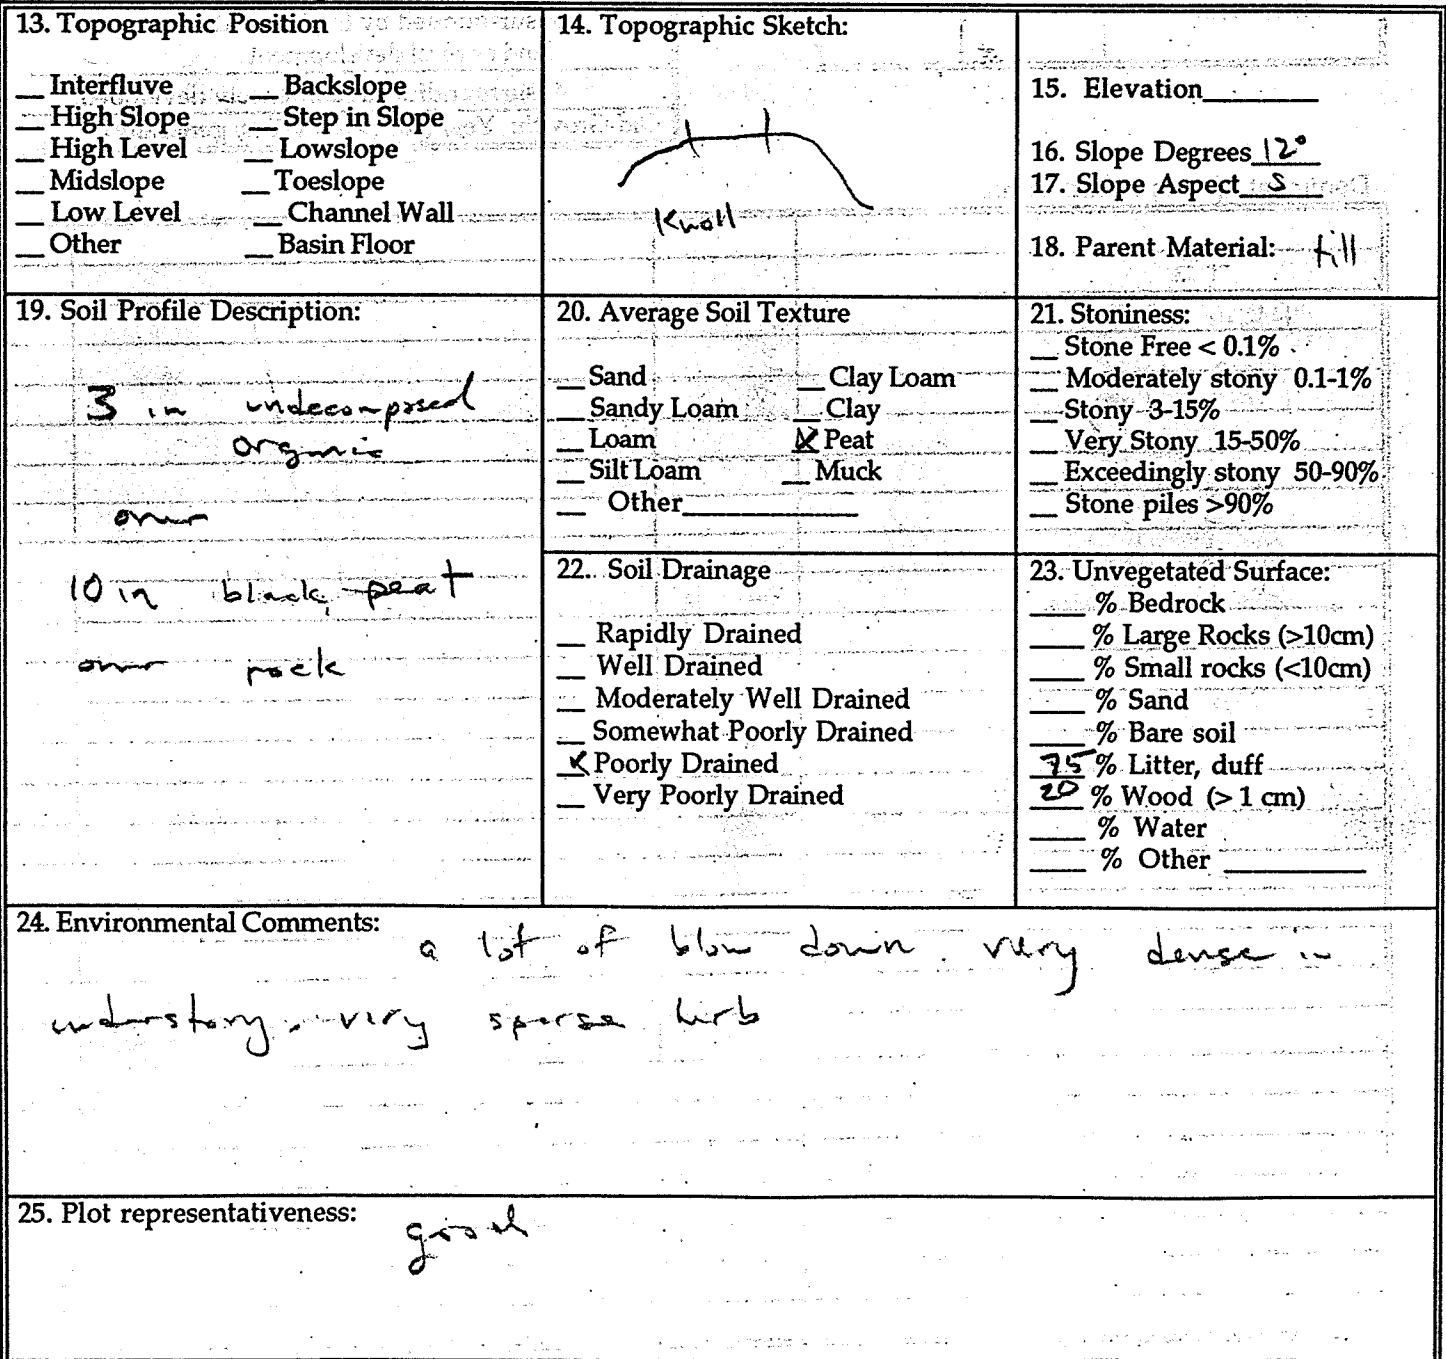 13. Topographic Position
__ Interfluve __ Backslope
__ High Slope __ Step in Slope
__ High Level __ Lowslope
__ Midslope __ Toeslope
__ Low Level __ Channel Wall
__ Other __ Basin Floor
14. Topographic Sketch:
Knoll
15. Elevation________
16. Slope Degrees 12°
17. Slope Aspect S
18. Parent Material: till
19. Soil Profile Description:
3 in undecomposed
organic
over
10 in black peat
over rock
20. Average Soil Texture
__ Sand __ Clay Loam
__ Sandy Loam __ Clay
__ Loam X Peat
__ Silt Loam __ Muck
__ Other____________
21. Stoniness:
__ Stone Free < 0.1%
__ Moderately stony 0.1-1%
__ Stony 3-15%
__ Very Stony 15-50%
__ Exceedingly stony 50-90%
__ Stone piles >90%
22. Soil Drainage
__ Rapidly Drained
__ Well Drained
__ Moderately Well Drained
__ Somewhat Poorly Drained
X Poorly Drained
__ Very Poorly Drained
23. Unvegetated Surface:
____ % Bedrock
____ % Large Rocks (>10cm)
____ % Small rocks (<10cm)
____ % Sand
____ % Bare soil
75 % Litter, duff
20 % Wood (> 1 cm)
____ % Water
____ % Other __________
24. Environmental Comments:
a lot of blow down. very dense in
understory. very sparse herb
25. Plot representativeness:
good